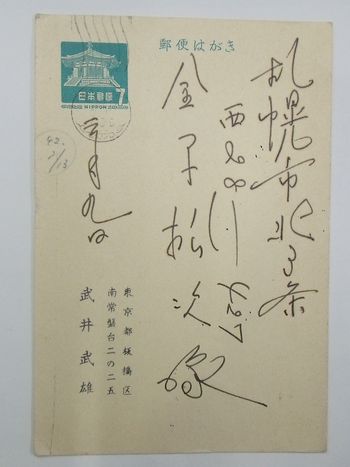 郵便はがき
日本郵便
NIPPON
7
札幌市北3条
金子松次
様
三月九日
42.
3/13
東京都板橋区
南常盤台二の二五
武井武雄